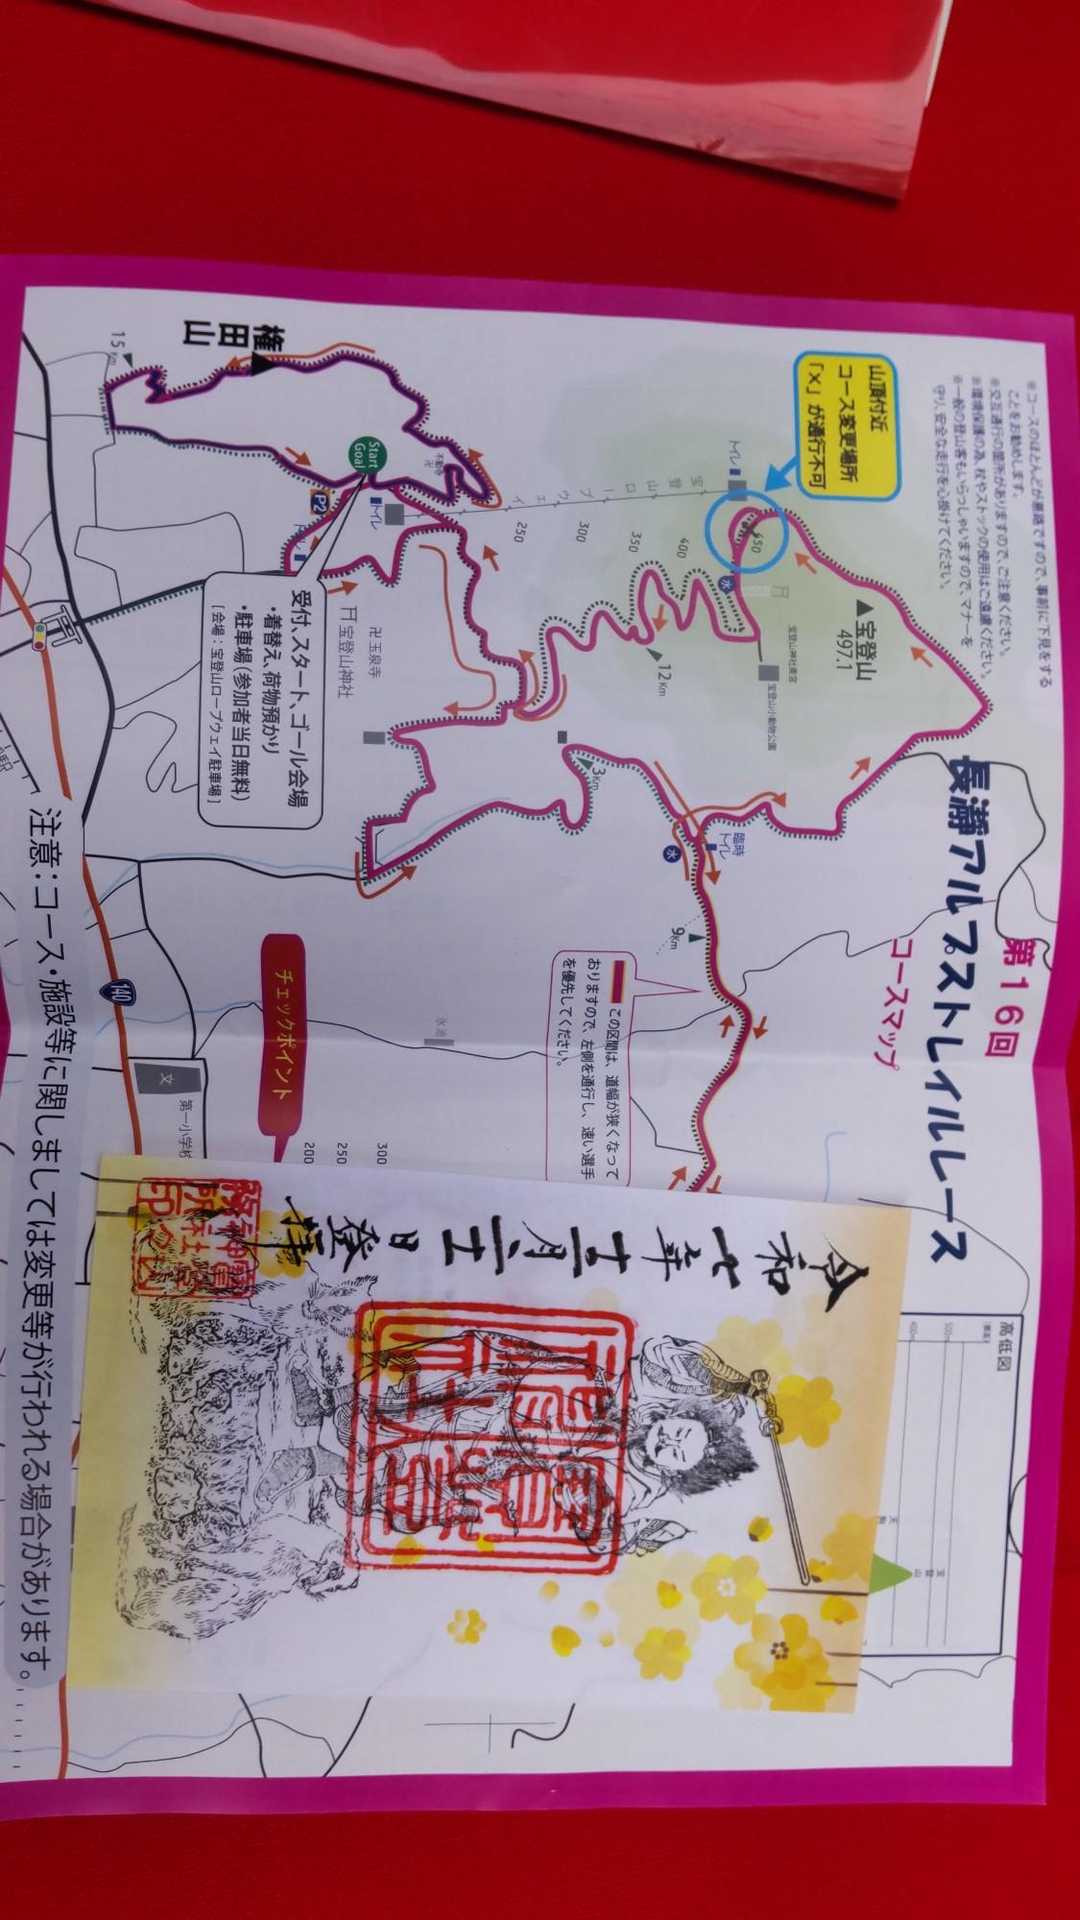 第16回
長瀞アルプストレイルレース
コースマップ
※コースのほとんどが悪路ですので、事前に下見をする
ことをお勧めします。
※交互通行の箇所がありますので、ご注意ください。
※環境保護の為、杖やストックの使用はご遠慮ください。
※一般の登山客もいらっしゃいますので、マナーを
守り、安全な走行を心掛けてください。
山頂付近
コース変更場所
「×」が通行不可
▲宝登山
497.1
トイレ
水
宝登山神社奥宮
宝登山小動物公園
宝登山ロープウェイ
450
400
350
300
250
12Km
3Km
臨時
トイレ
水
9Km
この区間は、道幅が狭くなって
おりますので、左側を通行し、速い選手
を優先してください。
権田山
15Km
不動寺
Start
Goal
P2
トイレ
卍玉泉寺
宝登山神社
受付、スタート、ゴール会場
・着替え、荷物預かり
・駐車場(参加者当日無料)
[会場:宝登山ロープウェイ駐車場]
チェックポイント
300
250
200
140
文
第一小学校
高低図
宝登山
注意:コース・施設等に関しましては変更等が行われる場合があります。
令和七年十二月二十一日登拝